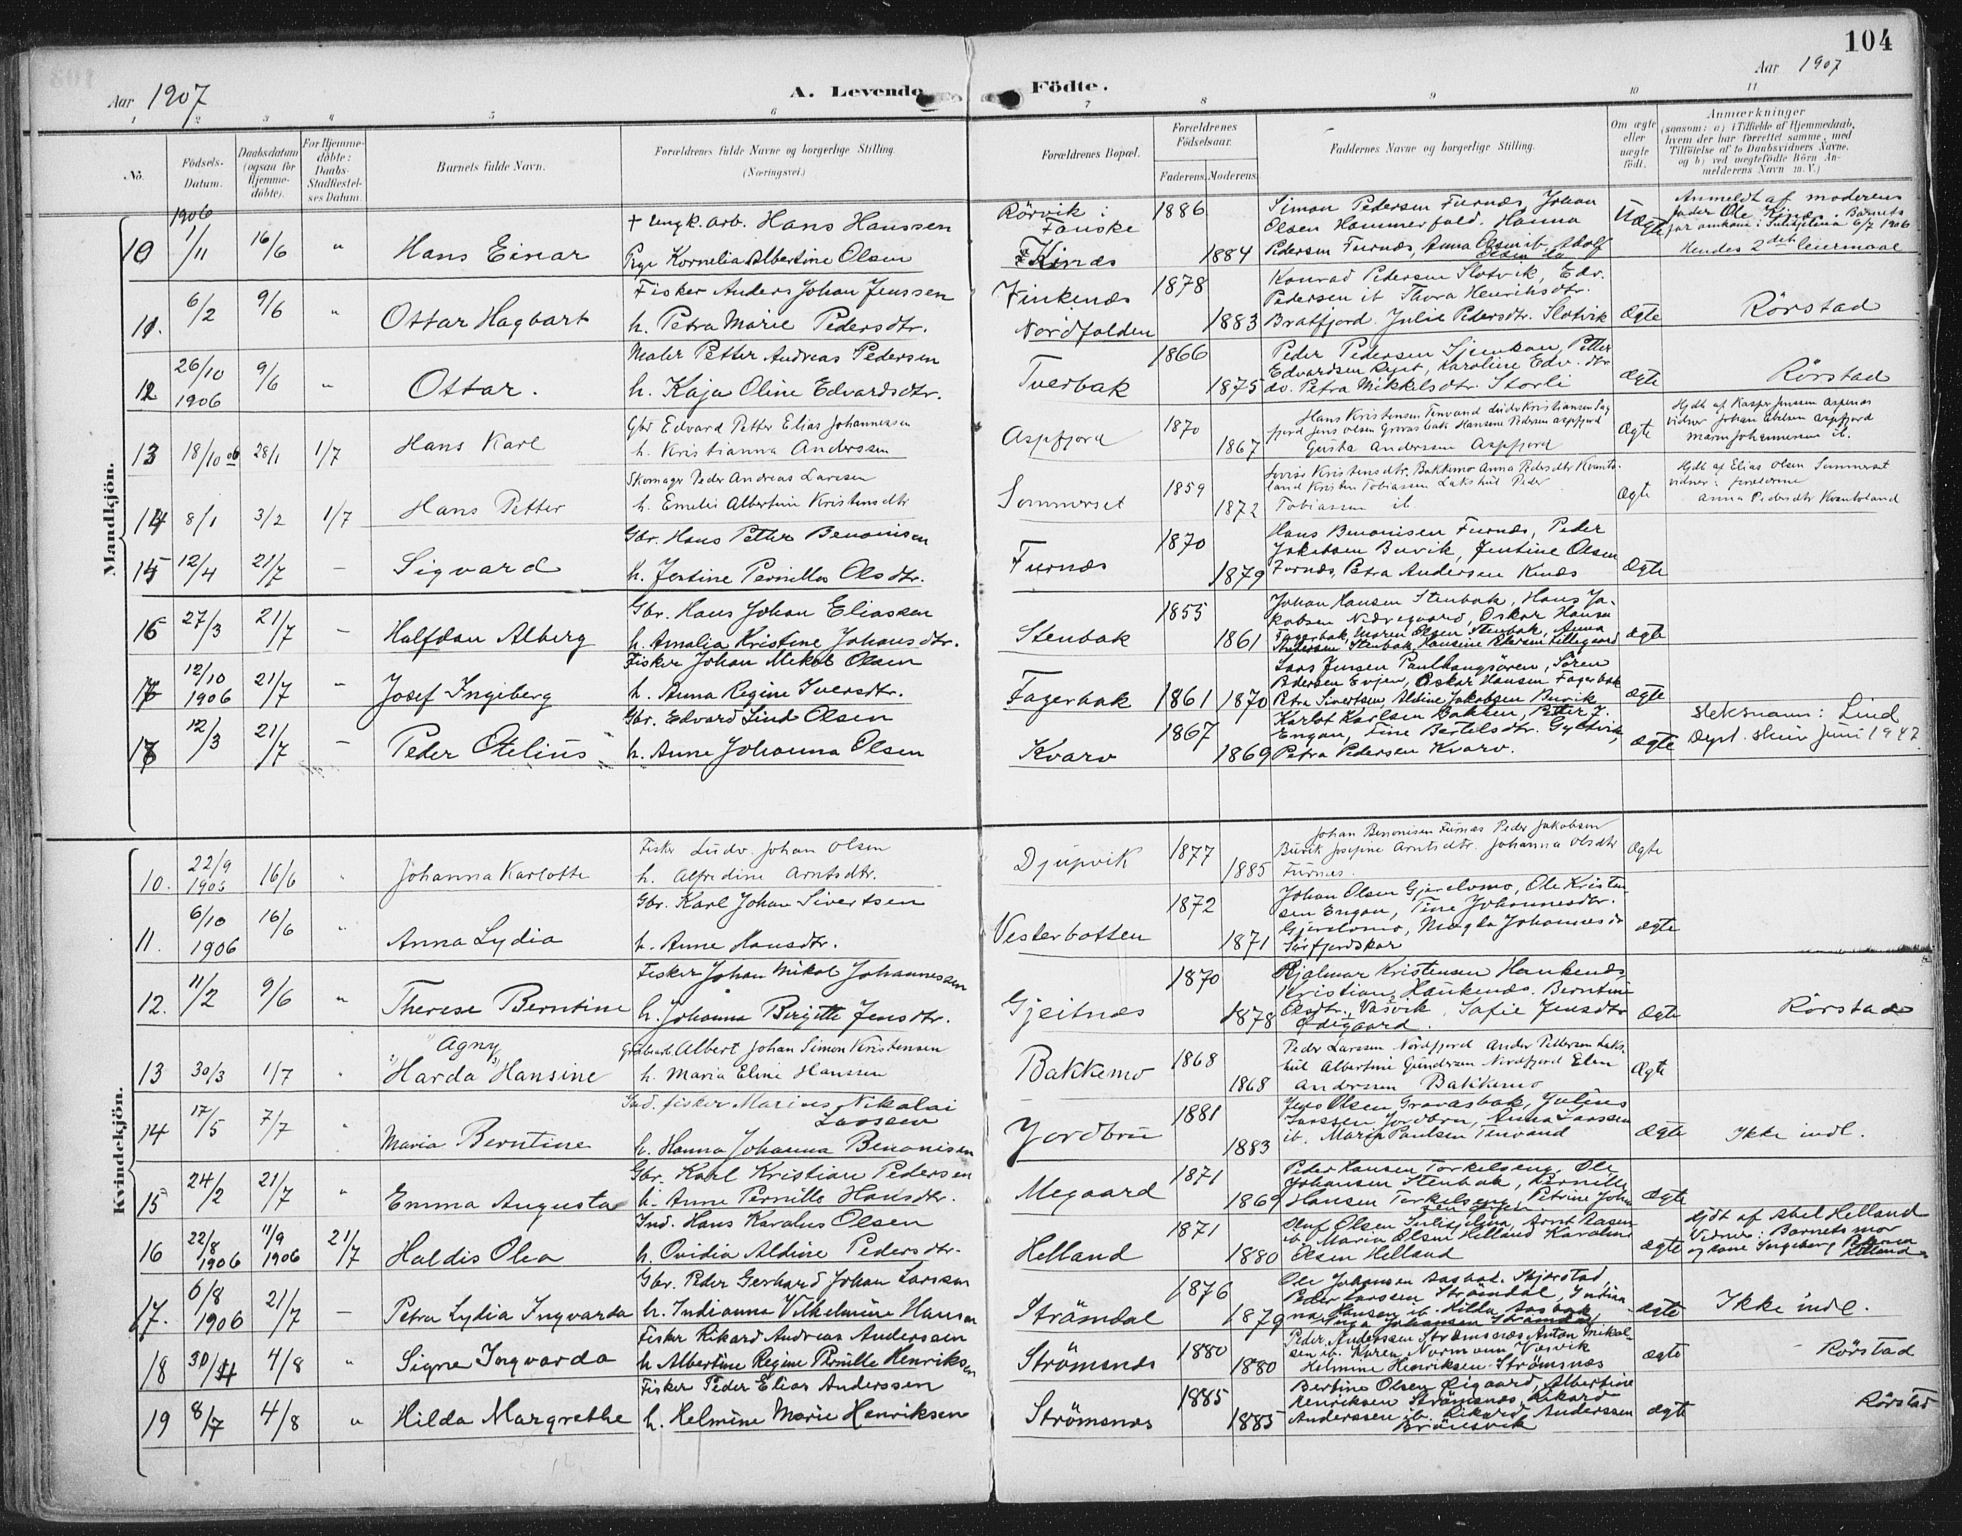 104
Aar 1907
A. Levende Födte.
Aar 1907
1 2 3 4 5 6 7 8 9 10 11
No. Födsels-Datum. Daabsdatum (ogsaa for Hjemmedöbte). For Hjemmedöbte: Daabs-Stadfæstelses Datum. Barnets fulde Navn. Forældrenes fulde Navne og borgerlige Stilling. (Næringsvei.) Forældrenes Bopæl. Forældrenes Födselsaar. Faderens. Moderens. Faddernes Navne og borgerlige Stilling. Om ægte eller uægte födt. Anmærkninger (saasom: a) i Tilfælde af Hjemmedaab, hvem der har forrettet samme, med Tilföielse af to Daabsvidners Navne, og b) ved uægtefödte Börn Anmelderens Navn m. V.)
Mandkjön.
10 1906 1/11 16/6 " Hans Einar + Ungk. arb. Hans Hanssen
Pige Kornelia Albertine Olsen
Rörvik i Fauske
Kines
1886 1884
Simon Pedersen Furnes, Johan
Olsen Hammerfald, Hanna
Pedersen Furnes, Anna Olsen ib. Adolf
Olsen do
Uægte
Anmeldt af moderens
fader Ole Kines. Barnets
far omkom i Sulitjelma 6/7 1906
Hendes 2det leiermaal
11. 6/2 9/6 " Ottar Hagbart Fisker Anders Johan Jenssen
h. Petra Marie Pedersdtr.
Finkenes
Nordfolden
1878 1883
Konrad Pedersen Slotvik, Edv.
Pedersen ib Thora Henriksdtr.
Bratfjord. Julie Pedersdtr. Slotvik
Ægte Rörstad
12 26/10 1906 9/6 " Ottar. Maler Petter Andreas Pedersen
h. Kaja Oline Edvardsdtr.
Tverbak 1866 1875
Peder Pedersen Sjunkan, Petter
Edvardsen Röset, Karoline Edv. dtr
do. Petra Mikkelsdtr. Storli
Ægte Rörstad
13 18/10 06 28/1 1/7 Hans Karl Gbr Edvard Petter Elias Johannessen
h. Kristianna Anderssen
Aspfjord 1870 1867
Hans Kristensen Tenvand
fjord Jens Olsen Gravasbak Hansine Pedersen Aspfjord
Gusta Anderssen Aspfjord
Ægte
Hjdt af Kasper Jenssen Aspenes
vidner Johan Edvardsen Aspfjord
Maren Johannessen ib.
14 8/1 3/2 1/7 Hans Petter Skomager Peder Andreas Larssen
h. Emelie Albertine Kristensdtr
Sommerset 1859 1872
Lovise Kristensdtr. Bakkemo Anna Pedersdtr Kvants-
land Kristen Tobiassen Lakshul Peder
Tobiassen ib.
Ægte
Hjdt af Elias Olsen Sommerset
vidner: forældrene
Anna Pedersdtr Kvantoland
15 12/4 21/7 – Sigvard Gbr. Hans Petter Benonisen
h. Jentine Pernille Olsdtr.
Furnes 1870 1879
Hans Benonisen Furnes, Peder
Jakobsen Buvik, Jentine Olsen
Furnes, Petra Andersen Kines
Ægte
16 27/3 21/7 – Halfdan Alberg Gbr. Hans Johan Eliassen
h. Amalia Kristine Johansdtr.
Stenbak 1855 1861
Johan Hansen Stenbak, Hans Ja-
kobsen Nedregaard, Oskar Hansen
Fagerbak, Maren Olsen Stenbak, Anna
Andersen Stenbak, Hansine Pedersen Lillegaard
Ægte
17 12/10 1906 21/7 " Josef Ingeberg Fisker Johan Mekal Olsen
h. Anna Regine Iversdtr.
Fagerbak 1861 1870
Lars Jensen Paulhaugsören, Sören
Pedersen Evjen, Oskar Hansen Fagerbak
Petra Sivertsen, Aldine Jakobsen Buvik
Ægte
18 12/3 21/7 – Peder Otelius Gbr. Edvard Lind Olsen
h. Anne Johanna Olsen
Kvarv 1867 1869
Karlot Karlsen Bakken, Petter J.
Engan, Tine Bertelsdtr. Gyltvik,
Petra Pedersen Kvarv.
Ægte
Slektsnavn: Lind
Juni 1947
Kvindekjön.
10. 22/9 1906 16/6 " Johanna Karlotte Fisker Ludv. Johan Olsen
h. Alfredine Arntsdtr.
Djupvik 1877 1885
Johan Benonisen Furnes Peder Jakobsen
Buvik Josefine Arntsdtr. Johanna Olsdtr
Furnes.
Ægte
11. 6/10 1906 16/6 " Anna Lydia Gbr. Karl Johan Sivertsen
h. Anne Hansdtr.
Vesterbotten 1872 1871
Johan Olsen Gjerelvmo, Ole Kristen-
sen Engan, Tine Johannesdtr.
Gjerelvmo, Magla Johannesdtr
Sörfjordskar
Ægte
12. 11/2 9/6 " Therese Berntine Fisker Johan Mikal Johannessen
h. Johanna Birgitte Jensdtr.
Gjeitnes 1870 1878
Hjalmar Kristensen Haukenes
Kristian Haukenes. Berntine
Olsdtr. Vasvik, Safie Jensdtr
Ödegaard.
Ægte Rörstad
13 30/3 1/7 " "Agny
Harda" Hansine
Albert Johan Simon Kristensen
h. Maria Eline Hanssen
Bakkemo 1868 1868
Peder Larssen Nordfjord Ander Pettersen Laks-
hul Albertine Gundersen Nordfjord Elen
Anderssen Bakkemo
Ægte
14 17/5 7/7 " Maria Berntine Ind. fisker Marius Nikolai
Larssen
h. Hanna Johanna Benonisen
Jordbru 1881 1883
Jens Olsen Gravasbak, Julius
Larssen Jordbru, Anna Larssen
ib. Marie Paulsen Tenvand
Ægte Ikke indl.
15 24/2 21/7 " Emma Augusta Gbr. Karl Kristian Pedersen
h. Anne Pernille Hansdtr.
Megaard 1871 1869
Peder Hansen Torkelseng, Ole
Johansen Stenbak, Pernille
Hansen Torkelseng, Petrine Johan-
sen Evjen.
Ægte
16 22/8 1906 11/9 1906 21/7 Haldis Olea Ind. Hans Karolus Olsen
h. Ovidia Aldine Pedersdtr.
Helland 1871 1880
Oluf Olsen Sulitjelma, Arnt Aasen
ib. Maria Olsen Helland Karoline
Olsen Helland
Ægte
Hjdt af Abel Helland
Vidner: Barnets mor
og kone Ingeborg Pedersen
Helland
17. 6/8 1906 21/7 – Petra Lydia Ingvarda Gbr. Peder Gerhard Johan Larssen
h. Indianna Vilhelmine Hansen
Strömdal 1876 1879
Ole Johansen Aasbak. Skjerstad,
Peder Larssen Strömdal, Indian-
na Hansen ib. Hilda Aasbak,
Inga Johansen Strömdal
Ægte Ikke indl.
18 30/4 4/8 " Signe Ingvarda Fisker Rikard Andreas Anderssen
h Albertine Regine Pernille Henriksen
Strömsnes 1880 1880
Peder Anderssen Strömsnes Anton Mikal-
sen ib. Karen Normann Vasvik
Helmine Henriksen Strömsnes
Ægte Rörstad
19 8/7 4/8 " Hilda Margrethe Fisker Peder Elias Anderssen
h. Helmine Marie Henriksen
Strömsnes 1885 1885
Bertine Olsen Öigaard, Albertine
Henriksen Strömsnes, Rikard
Anderssen ib. Rikard Anderssen
Brönsvik
Ægte Rörstad